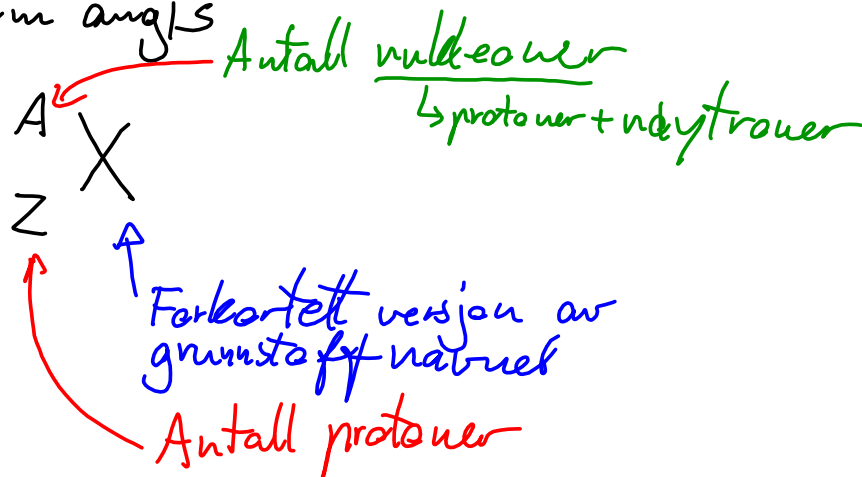 angls
Antall nukleoner
↳ protoner + nøytroner
A
X
Z
Forkortett versjon av
grunnstoff navnet
Antall protoner